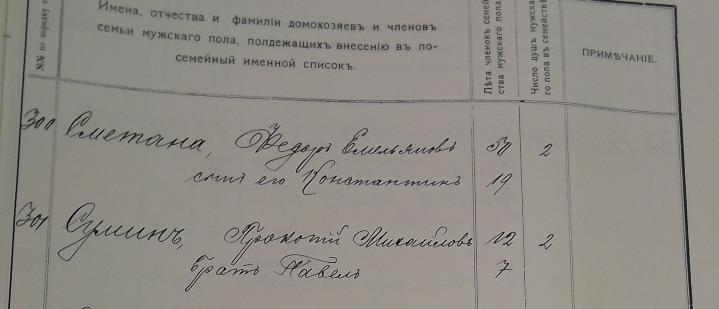 №№ по порядку
Имена, отчества и фамиліи домохозяевъ и членовъ
семьи мужскаго пола, подлежащихъ внесенію въ по-
семейный именной списокъ.
Лѣта членовъ семей-
ства мужскаго пола.
Число душъ мужска-
го пола въ семействѣ
ПРИМѢЧАНІЕ.
300 Сметана, Ѳедоръ Емельяновъ 50 2
сынъ его Константинъ 19
301 Суминъ, Прокопій Михайловъ 12 2
братъ Павелъ 7